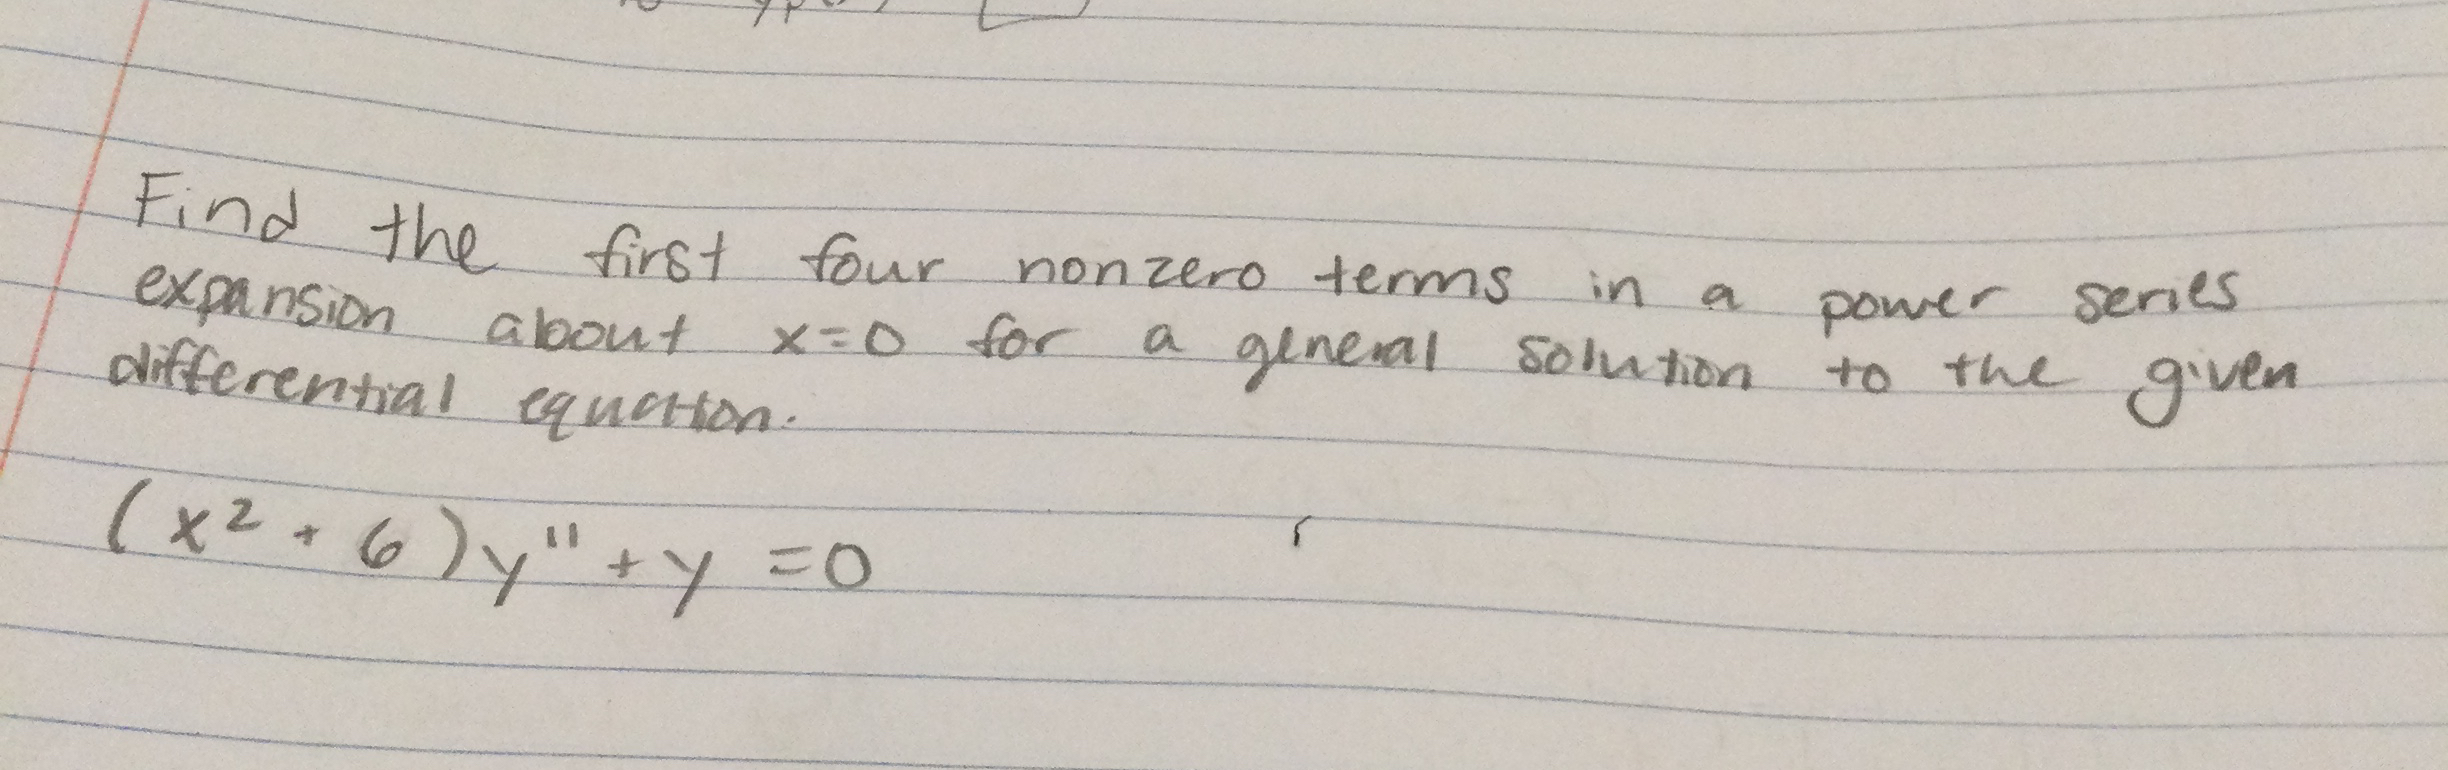 Find the first four nonzero terms in a power series
expansion about x=0 for a general solution to the given
differential equation.
(x² + 6)y" + y = 0